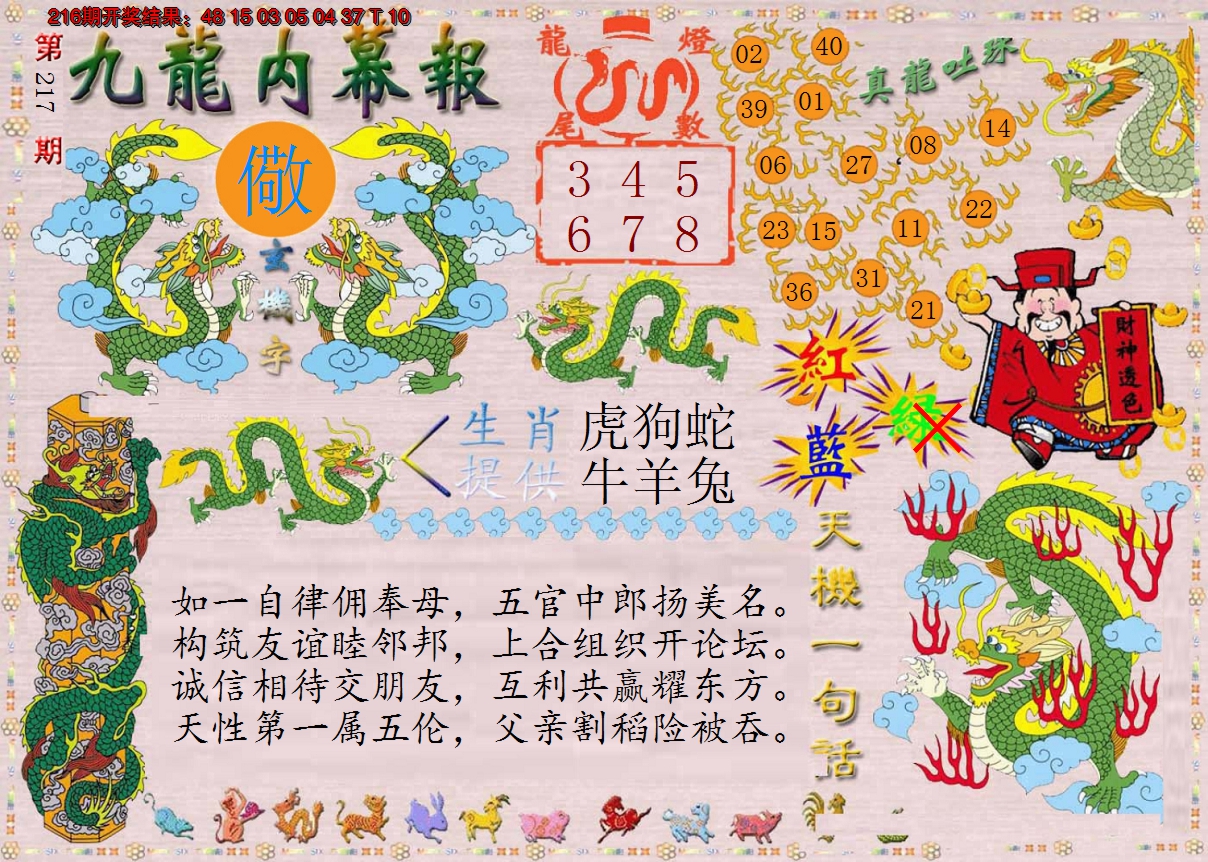 216期开奖结果：48 15 03 05 04 37 T 10
第217期
九龍内幕報
儆
玄機字
龍燈
尾數
3 4 5
6 7 8
真龍吐珠
02
40
39
01
14
08
06
27
22
23
15
11
31
36
21
財神透色
紅
綠
藍
生肖 虎狗蛇
提供 牛羊兔
天機一句话
如一自律佣奉母，五官中郎扬美名。
构筑友谊睦邻邦，上合组织开论坛。
诚信相待交朋友，互利共赢耀东方。
天性第一属五伦，父亲割稻险被吞。